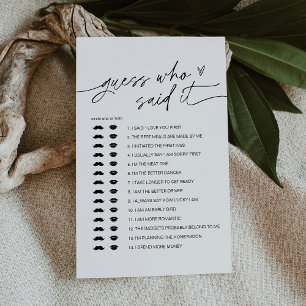 guess who
said it
circle who or both!
1. I SAID I LOVE YOU FIRST
2. THE BEST MEALS ARE MADE BY ME
3. I INITIATED THE FIRST KISS
4. I USUALLY SAY I AM SORRY FIRST
5. I'M THE NEAT ONE
6. I'M THE BETTER DANCER
7. I TAKE LONGER TO GET READY
8. I AM THE BETTER DRIVER
9. I ALWAYS SAY HOW LUCKY I AM
10. I AM AN EARLY BIRD
11. I AM MORE ROMANTIC
12. THE GADGETS PROBABLY BELONG TO ME
13. I'M PLANNING THE HONEYMOON
14. I SPEND MORE MONEY